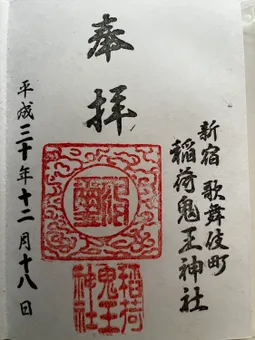 新宿 歌舞伎町
稲荷鬼王神社
奉拝
平成三十年十二月十八日
稲荷
鬼王
神社